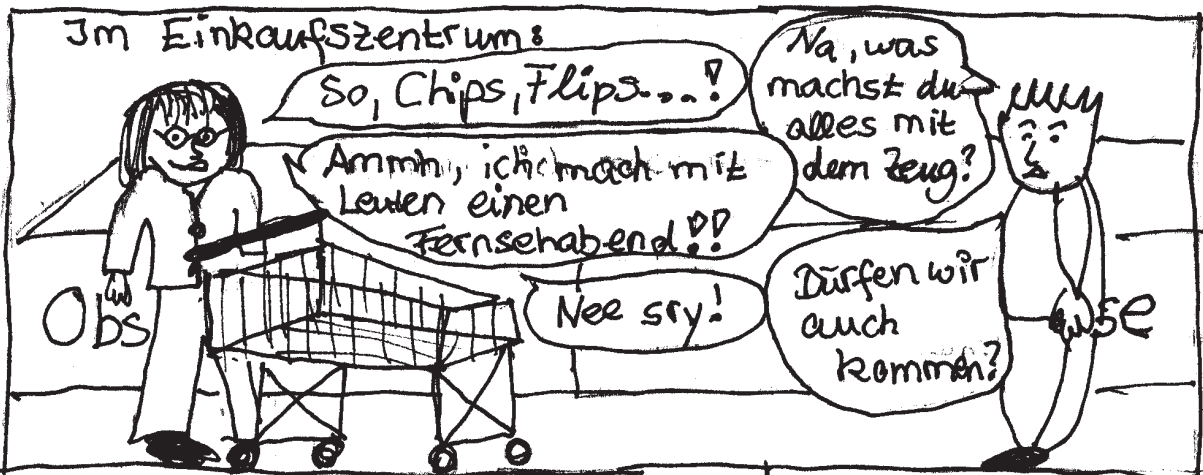 Im Einkaufszentrum:
So, Chips, Flips....!
Na, was
machst du
alles mit
dem Zeug?
Ammh, ich mach mit
Leuten einen
Fernsehabend!!
Dürfen wir
auch
kommen?
Nee sry!
Obs
se